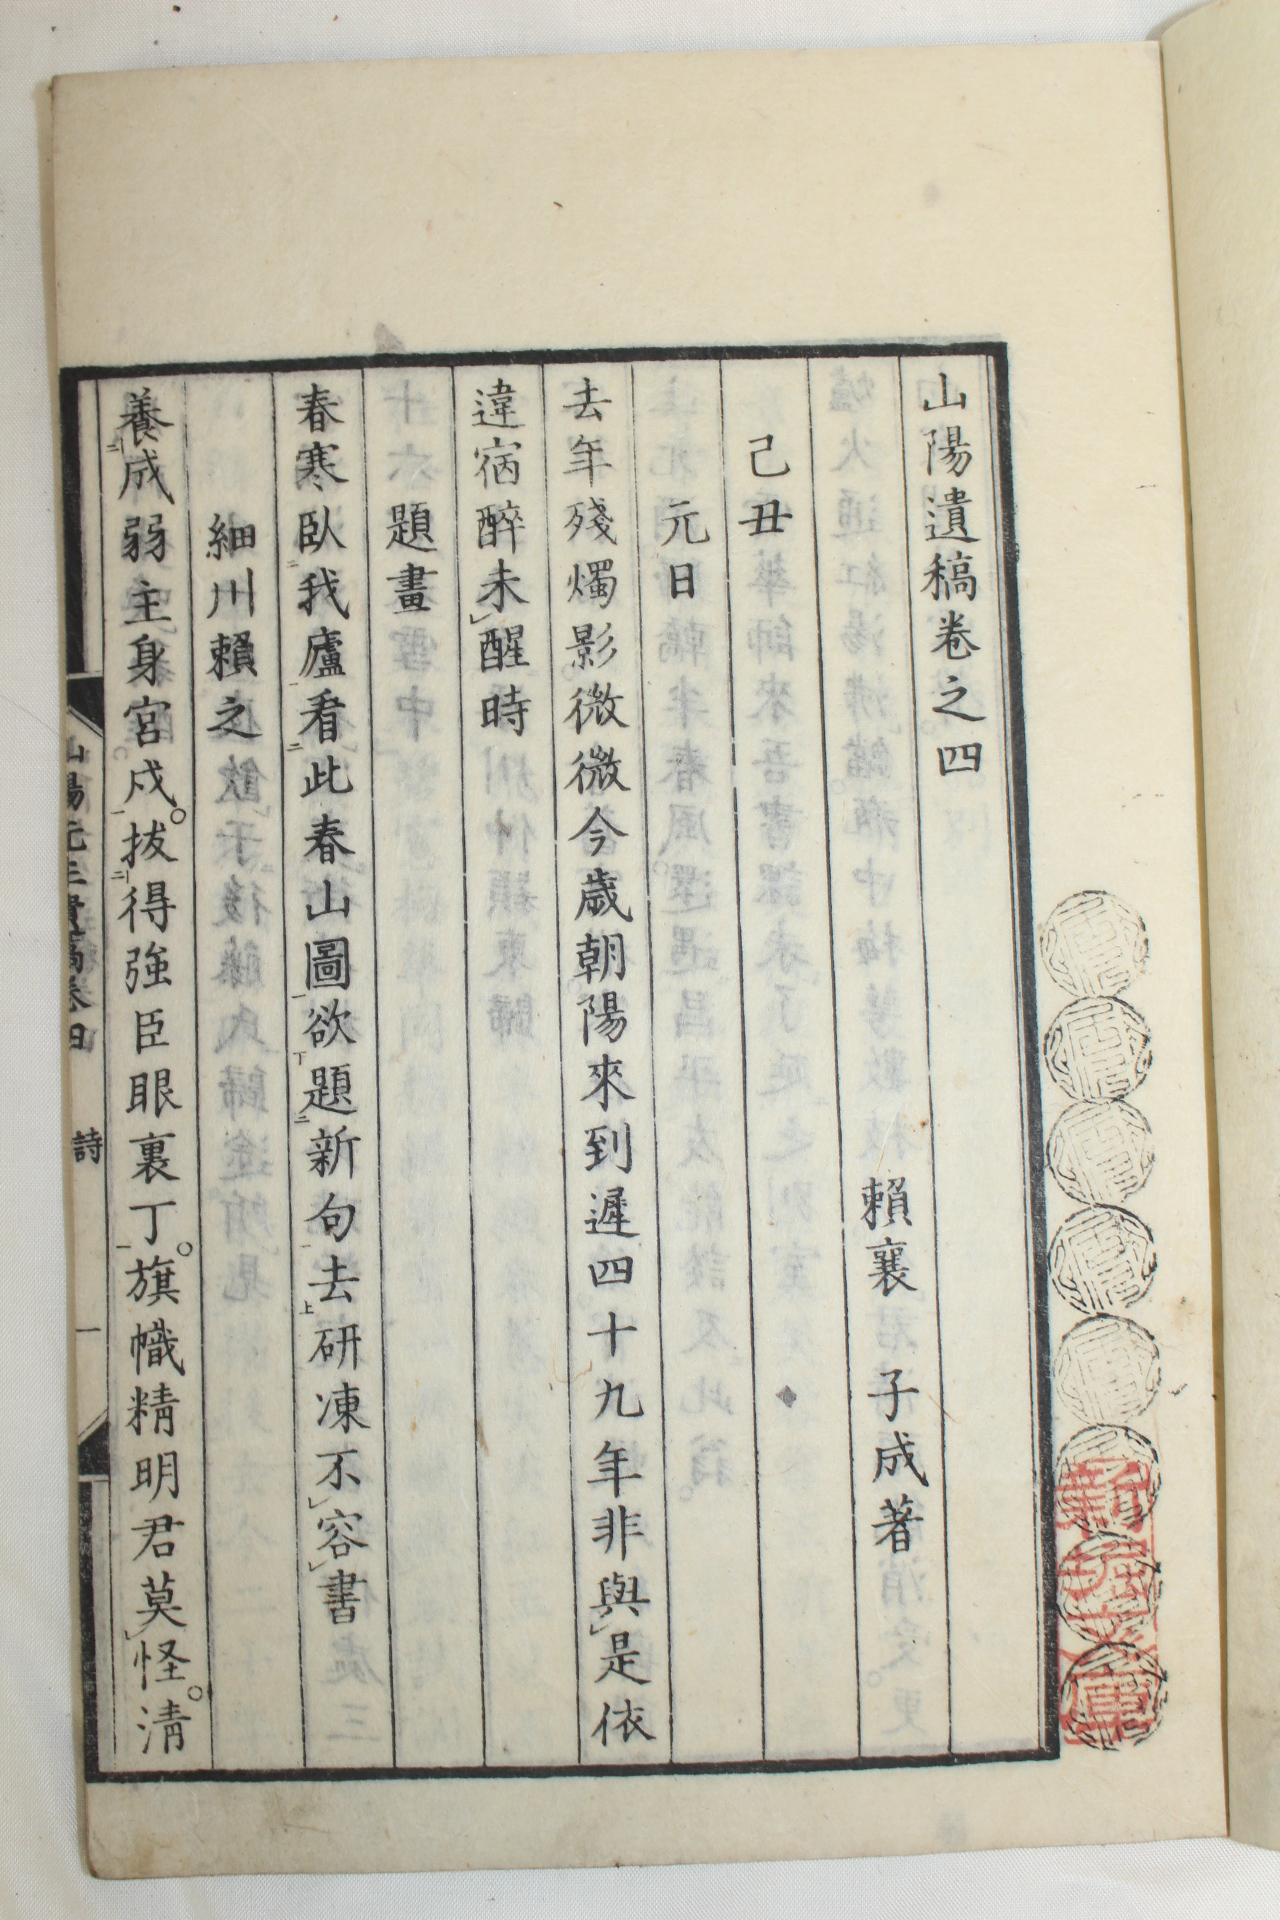 山陽遺稿卷之四
賴襄 子成著
己丑
元日
去年殘燭影微微今歲朝陽來到遲四十九年非與是依
違宿醉未醒時
題畫
春寒臥我廬看此春山圖欲題新句去研凍不容書
細川賴之
養成弱主身宮戍拔得強臣眼裏丁旗幟精明君莫怪清
山陽先生遺稿卷四 詩 一